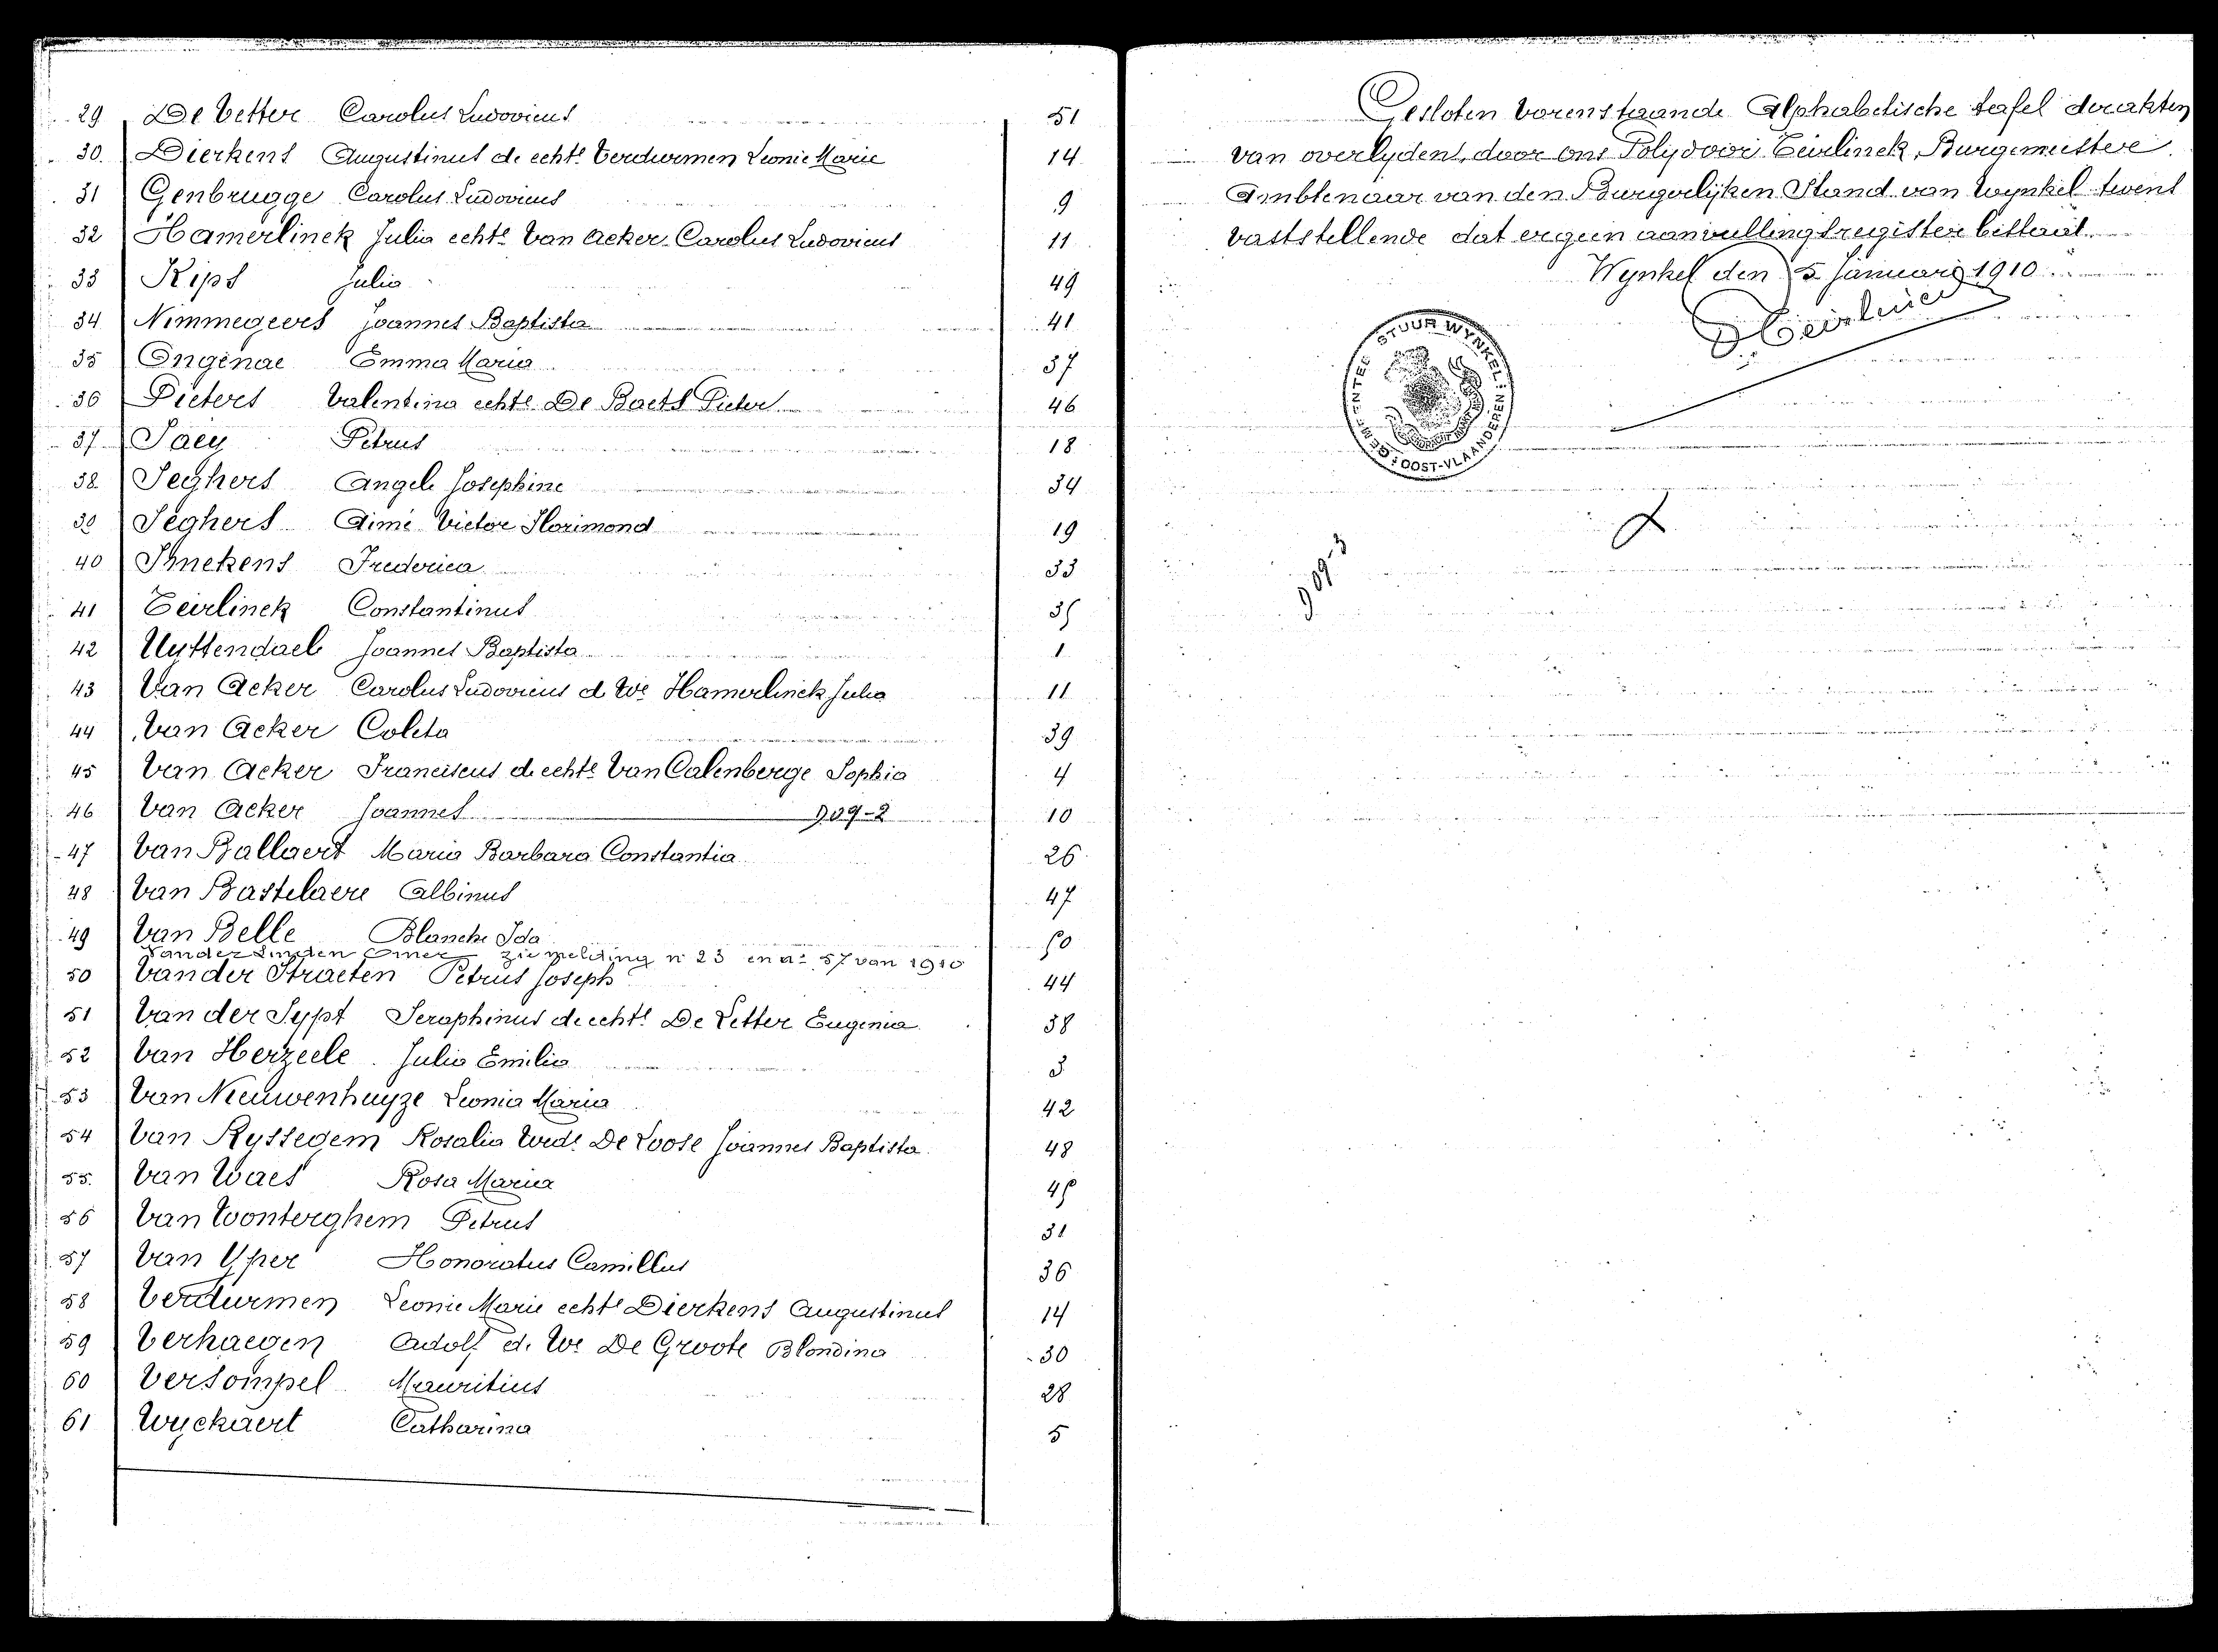 29 De Vetter Carolus Ludovicus 51
30. Dierkens Augustinus d. echte Verdurmen Leonie Marie 14
31 Genbrugge Carolus Ludovicus 9
32 Hamerlinck Julia echte Van Acker Carolus Ludovicus 11
33 Kips Julia 49
34 Nimmegeers Joannes Baptista 41
35 Ongenae Emma Maria 37
36 Pieters Valentina echte De Baets Pieter 46
37 Saey Petrus 18
38. Seghers Angele Josephine 34
39 Seghers Aimé Victor Florimond 19
40 Smekens Frederica 33
41 Teirlinck Constantinus 35
42 Uyttendaele Joannes Baptista 1
43 Van Acker Carolus Ludovicus d. We Hamerlinck Julia 11
44 Van Acker Coleta 39
45 Van Acker Franciscus d. echte Van Calenberge Sophia 4
46 Van Acker Joannes D09-2 10
47 Van Ballaert Maria Barbara Constantia 26
48 Van Bastelaere Albinus 47
49 Van Belle Blanche Ida 50
Vander Linden Omer zie melding n 23 en a° 57 van 1910
50 Van der Straeten Petrus Joseph 44
51 Van der Sypt Seraphinus de echte De Letter Eugenia 38
52 Van Herzeele Julia Emilia 3
53 Van Nieuwenhuyze Leonia Maria 42
54 Van Ryssegem Rosalia Wede De Loose Joannes Baptista 48
55. Van Waes Rosa Maria 45
56 Van Wonterghem Petrus 31
57 Van Yper Honoratus Camillus 36
58 Verdurmen Leonie Marie echte Dierkens Augustinus 14
59 Verhaegen Adolf d. We De Groote Blondina 30
60 Versompel Mauritius 28
61 Wyckaert Catharina 5
Gesloten vorenstaande Alphabetische tafel der akten
van overlydens, door ons Polydoor Teirlinck, Burgemeester
Ambtenaar van den Burgerlijken Stand van Wynkel tevens
vaststellende dat er geen aanvullingsregister bestaat.
Wynkel den 5 Januari 1910
PTeirlinck
GEMEENTEBESTUUR WYNKEL
OOST-VLAANDEREN
D09-3